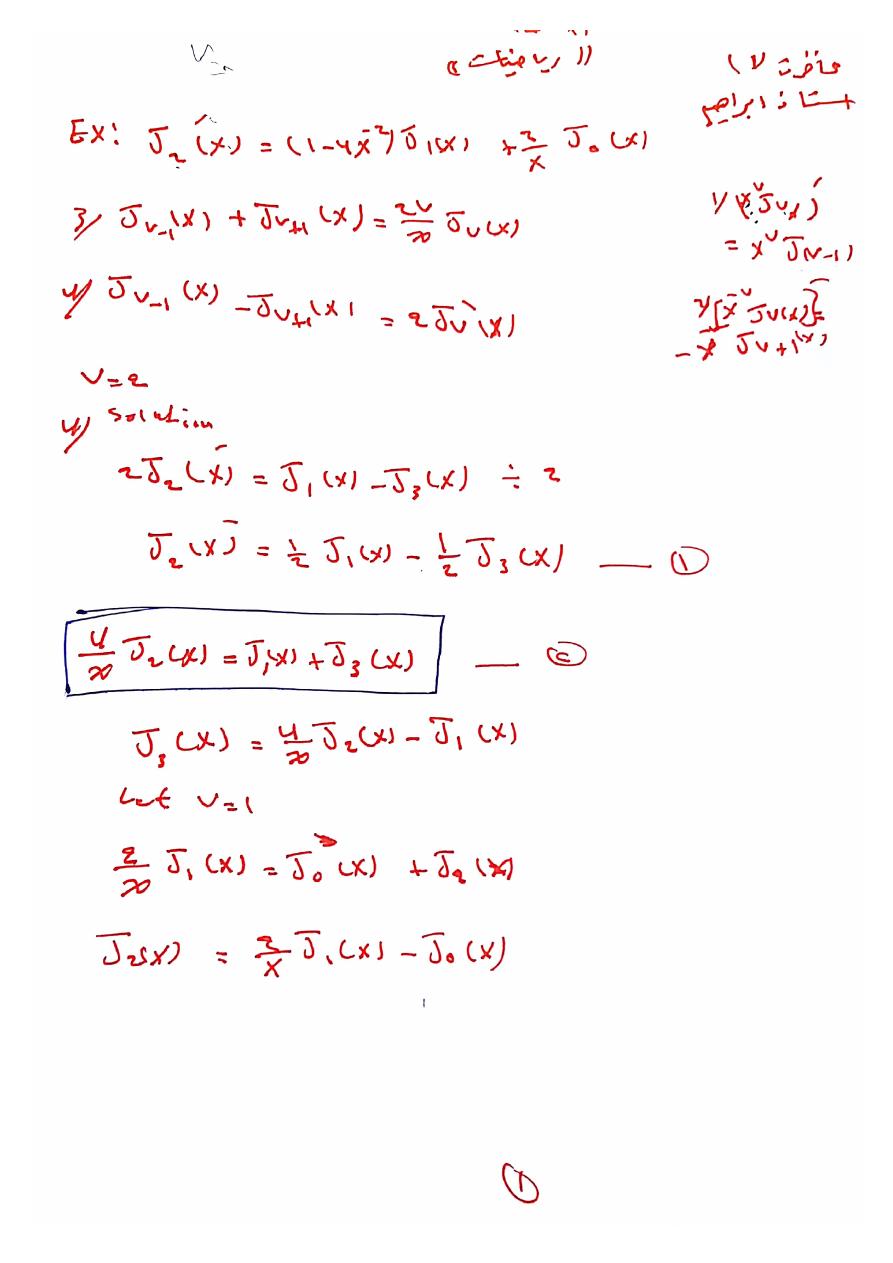 (( رياضيات ))
محاضرة (٧
استاذ ابراهيم
Ex: J₂′(x) = (1-4x⁻²) J₁(x) + 2/x J₀(x)
1/ (x^v Jv x)′
= x^v J(v-1)
3/ Jv-1(x) + Jv+1(x) = 2v/x Jv(x)
4/ Jv-1(x) - Jv+1(x) = 2Jv′(x)
2/ [x^-v Jv(x)]′ =
Jv+1(x)
v=2
4/ Solution
2J₂′(x) = J₁(x) - J₃(x) ÷ 2
J₂(x)′ = 1/2 J₁(x) - 1/2 J₃(x) — ①
4/x J₂(x) = J₁(x) + J₃(x) — ②
J₃(x) = 4/x J₂(x) - J₁(x)
Let v=1
2/x J₁(x) = J₀(x) + J₂(x)
J₂(x) = 2/x J₁(x) - J₀(x)
①